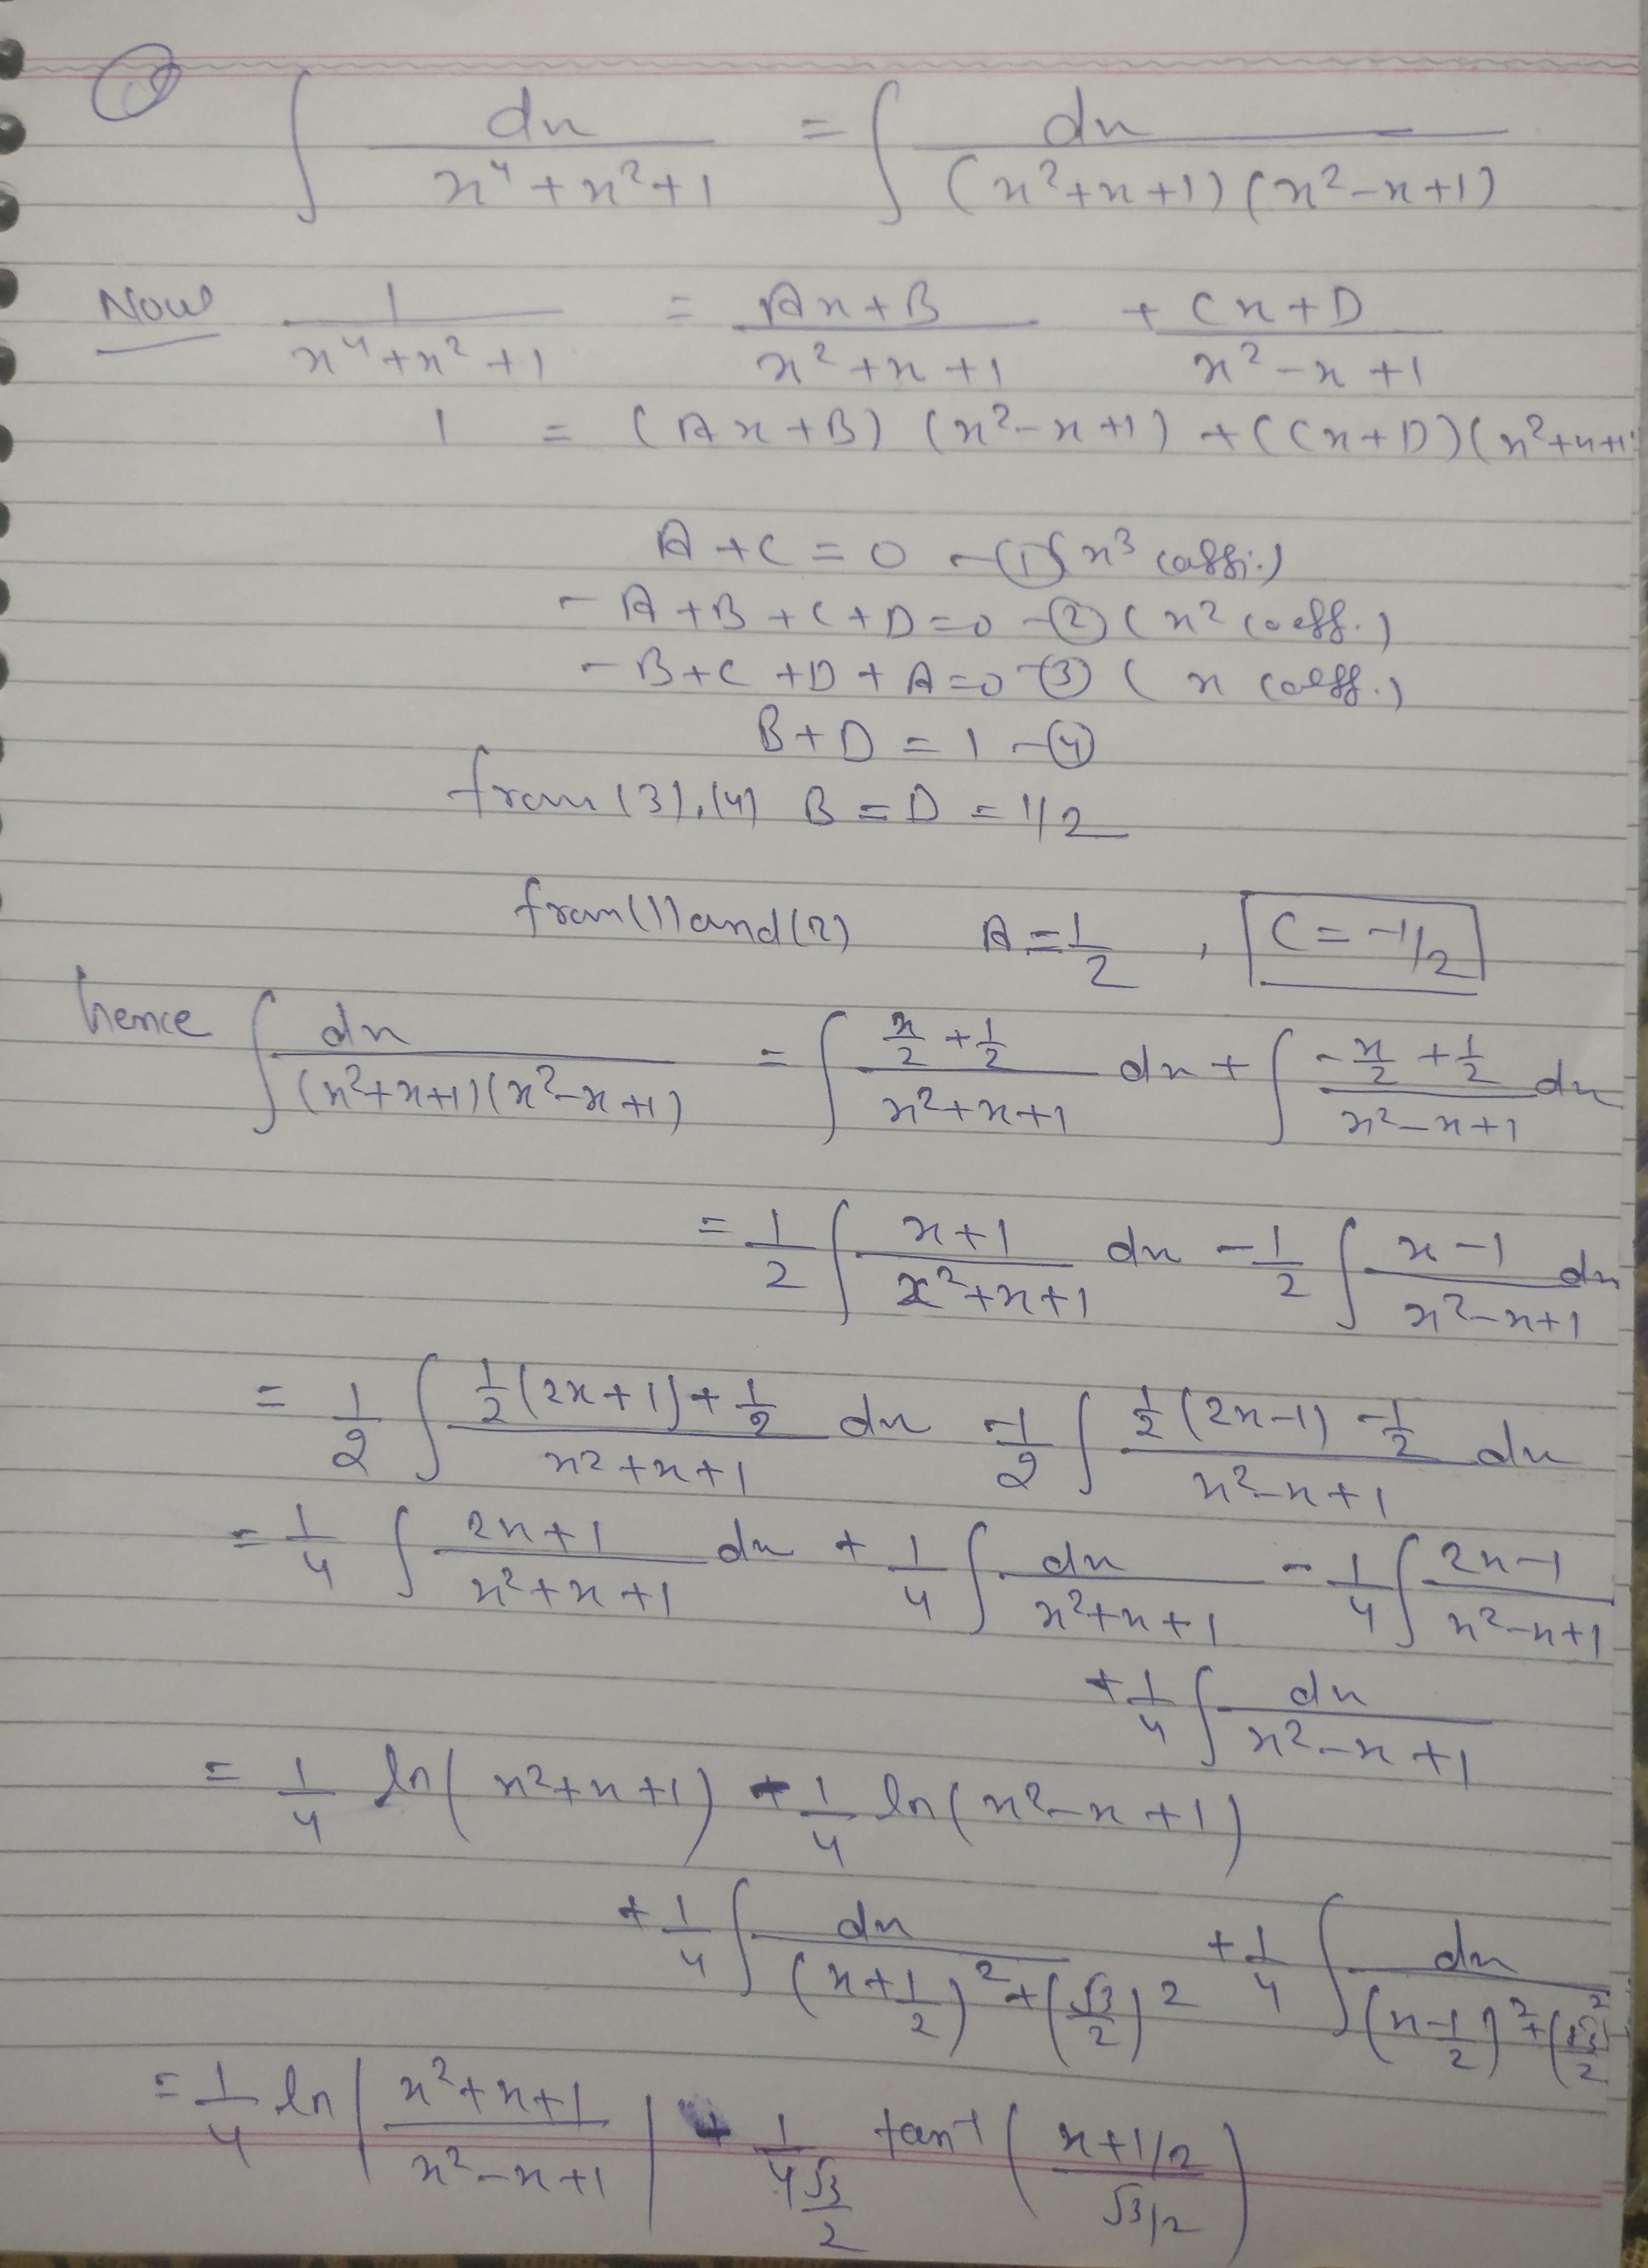 ①
∫ dx/(x⁴+x²+1) = ∫ dx/((x²+x+1)(x²-x+1))
Now 1/(x⁴+x²+1) = (Ax+B)/(x²+x+1) + (Cx+D)/(x²-x+1)
1 = (Ax+B) (x²-x+1) + (Cx+D)(x²+x+1)
A+C = 0 -① (x³ coeffi.)
-A+B+C+D=0 -② (x² coeff.)
-B+C+D+A=0 -③ ( x coeff.)
B+D = 1 -④
from (3),(4) B = D = 1/2
from(1) and (2) A = 1/2 , C = -1/2
hence ∫ dx/((x²+x+1)(x²-x+1)) = ∫ (x/2 + 1/2)/(x²+x+1) dx + ∫ (-x/2 + 1/2)/(x²-x+1) dx
= 1/2 ∫ (x+1)/(x²+x+1) dx - 1/2 ∫ (x-1)/(x²-x+1) dx
= 1/2 ∫ (1/2(2x+1)+1/2)/(x²+x+1) dx - 1/2 ∫ (1/2(2x-1) - 1/2)/(x²-x+1) dx
= 1/4 ∫ (2x+1)/(x²+x+1) dx + 1/4 ∫ dx/(x²+x+1) - 1/4 ∫ (2x-1)/(x²-x+1)
+ 1/4 ∫ dx/(x²-x+1)
= 1/4 ln(x²+x+1) - 1/4 ln(x²-x+1)
+ 1/4 ∫ dx/((x+1/2)²+(√3/2)²) + 1/4 ∫ dx/((x-1/2)²+(√3/2)²
= 1/4 ln |(x²+x+1)/(x²-x+1)| + 1/(4√3/2) tan⁻¹ ((x+1/2)/(√3/2))